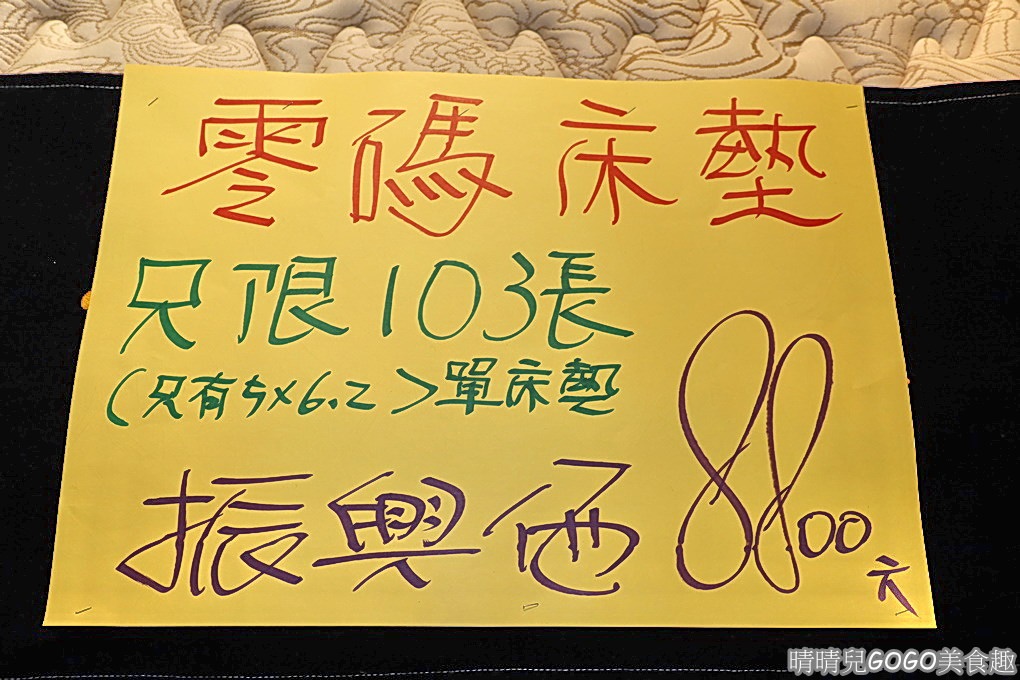 零碼床墊
只限10張
(只有5x6.2)單床墊
振興価 8800元
晴晴兒GOGO美食趣